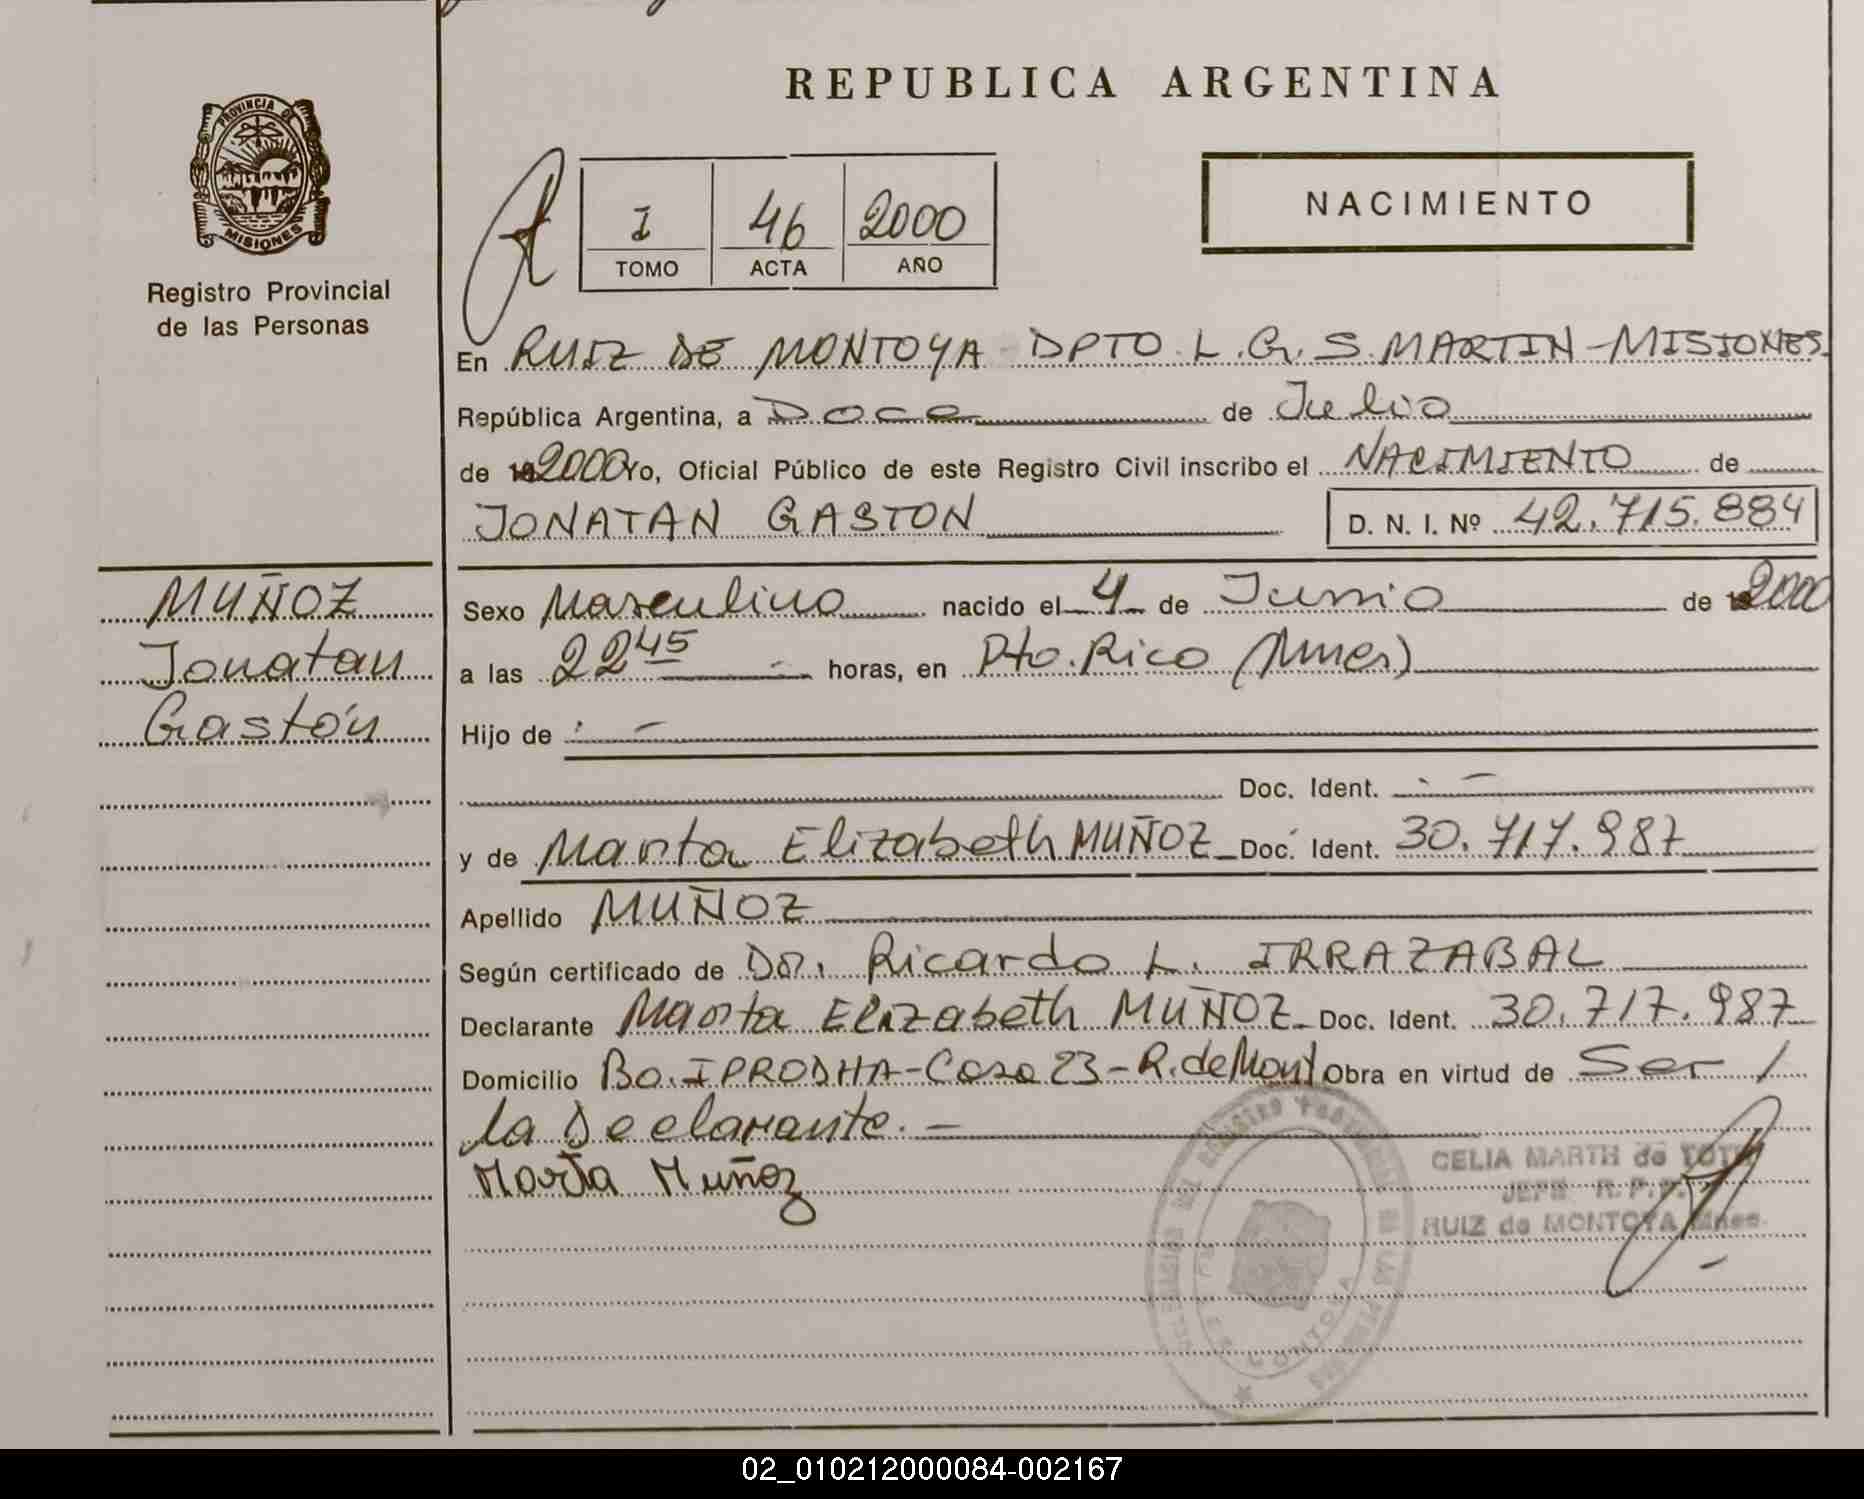 REPUBLICA ARGENTINA
PROVINCIA DE
MISIONES
Registro Provincial
de las Personas
I 46 2000
TOMO ACTA AÑO
NACIMIENTO
En RUIZ DE MONTOYA - DPTO. L.G.S. MARTIN - MISIONES.
República Argentina, a Doce de Julio
de 19 2000 Yo, Oficial Público de este Registro Civil inscribo el NACIMIENTO de
JONATAN GASTON D. N. I. Nº 42.715.884
MUÑOZ
Jonatan
Gastón
Sexo Masculino nacido el 4 de Junio de 19 2000
a las 22 45 horas, en Pto. Rico (Mnes)
Hijo de : —
Doc. Ident. . —
y de Marta Elizabeth MUÑOZ Doc. Ident. 30.717.987
Apellido MUÑOZ
Según certificado de Dr. Ricardo L. IRRAZABAL
Declarante Marta Elizabeth MUÑOZ Doc. Ident. 30.717.987
Domicilio Bo. IPRODHA - Casa 23 - R. de Mont Obra en virtud de Ser /
la Declarante. —
Marta Muñoz
CELIA MARTH de TOTH
JEFE R. P. P.
RUIZ de MONTOYA Mnes.
02_010212000084-002167